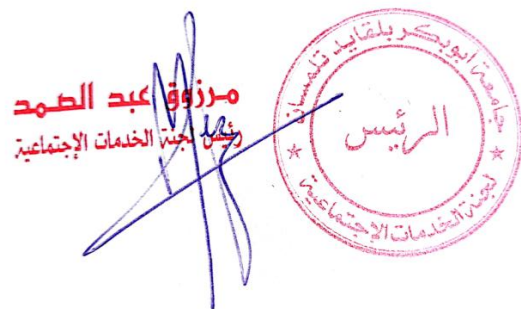 مرزوق عبد الصمد
رئيس لجنة الخدمات الإجتماعية
جامعة ابوبكر بلقايد تلمسان
الرئيس
لجنة الخدمات الإجتماعية